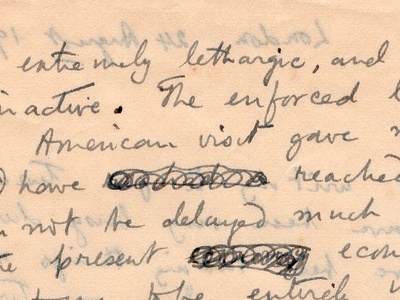 extremely lethargic, and
inactive. The enforced
American visit gave
have reached
not be delayed much
present econ
be entirely